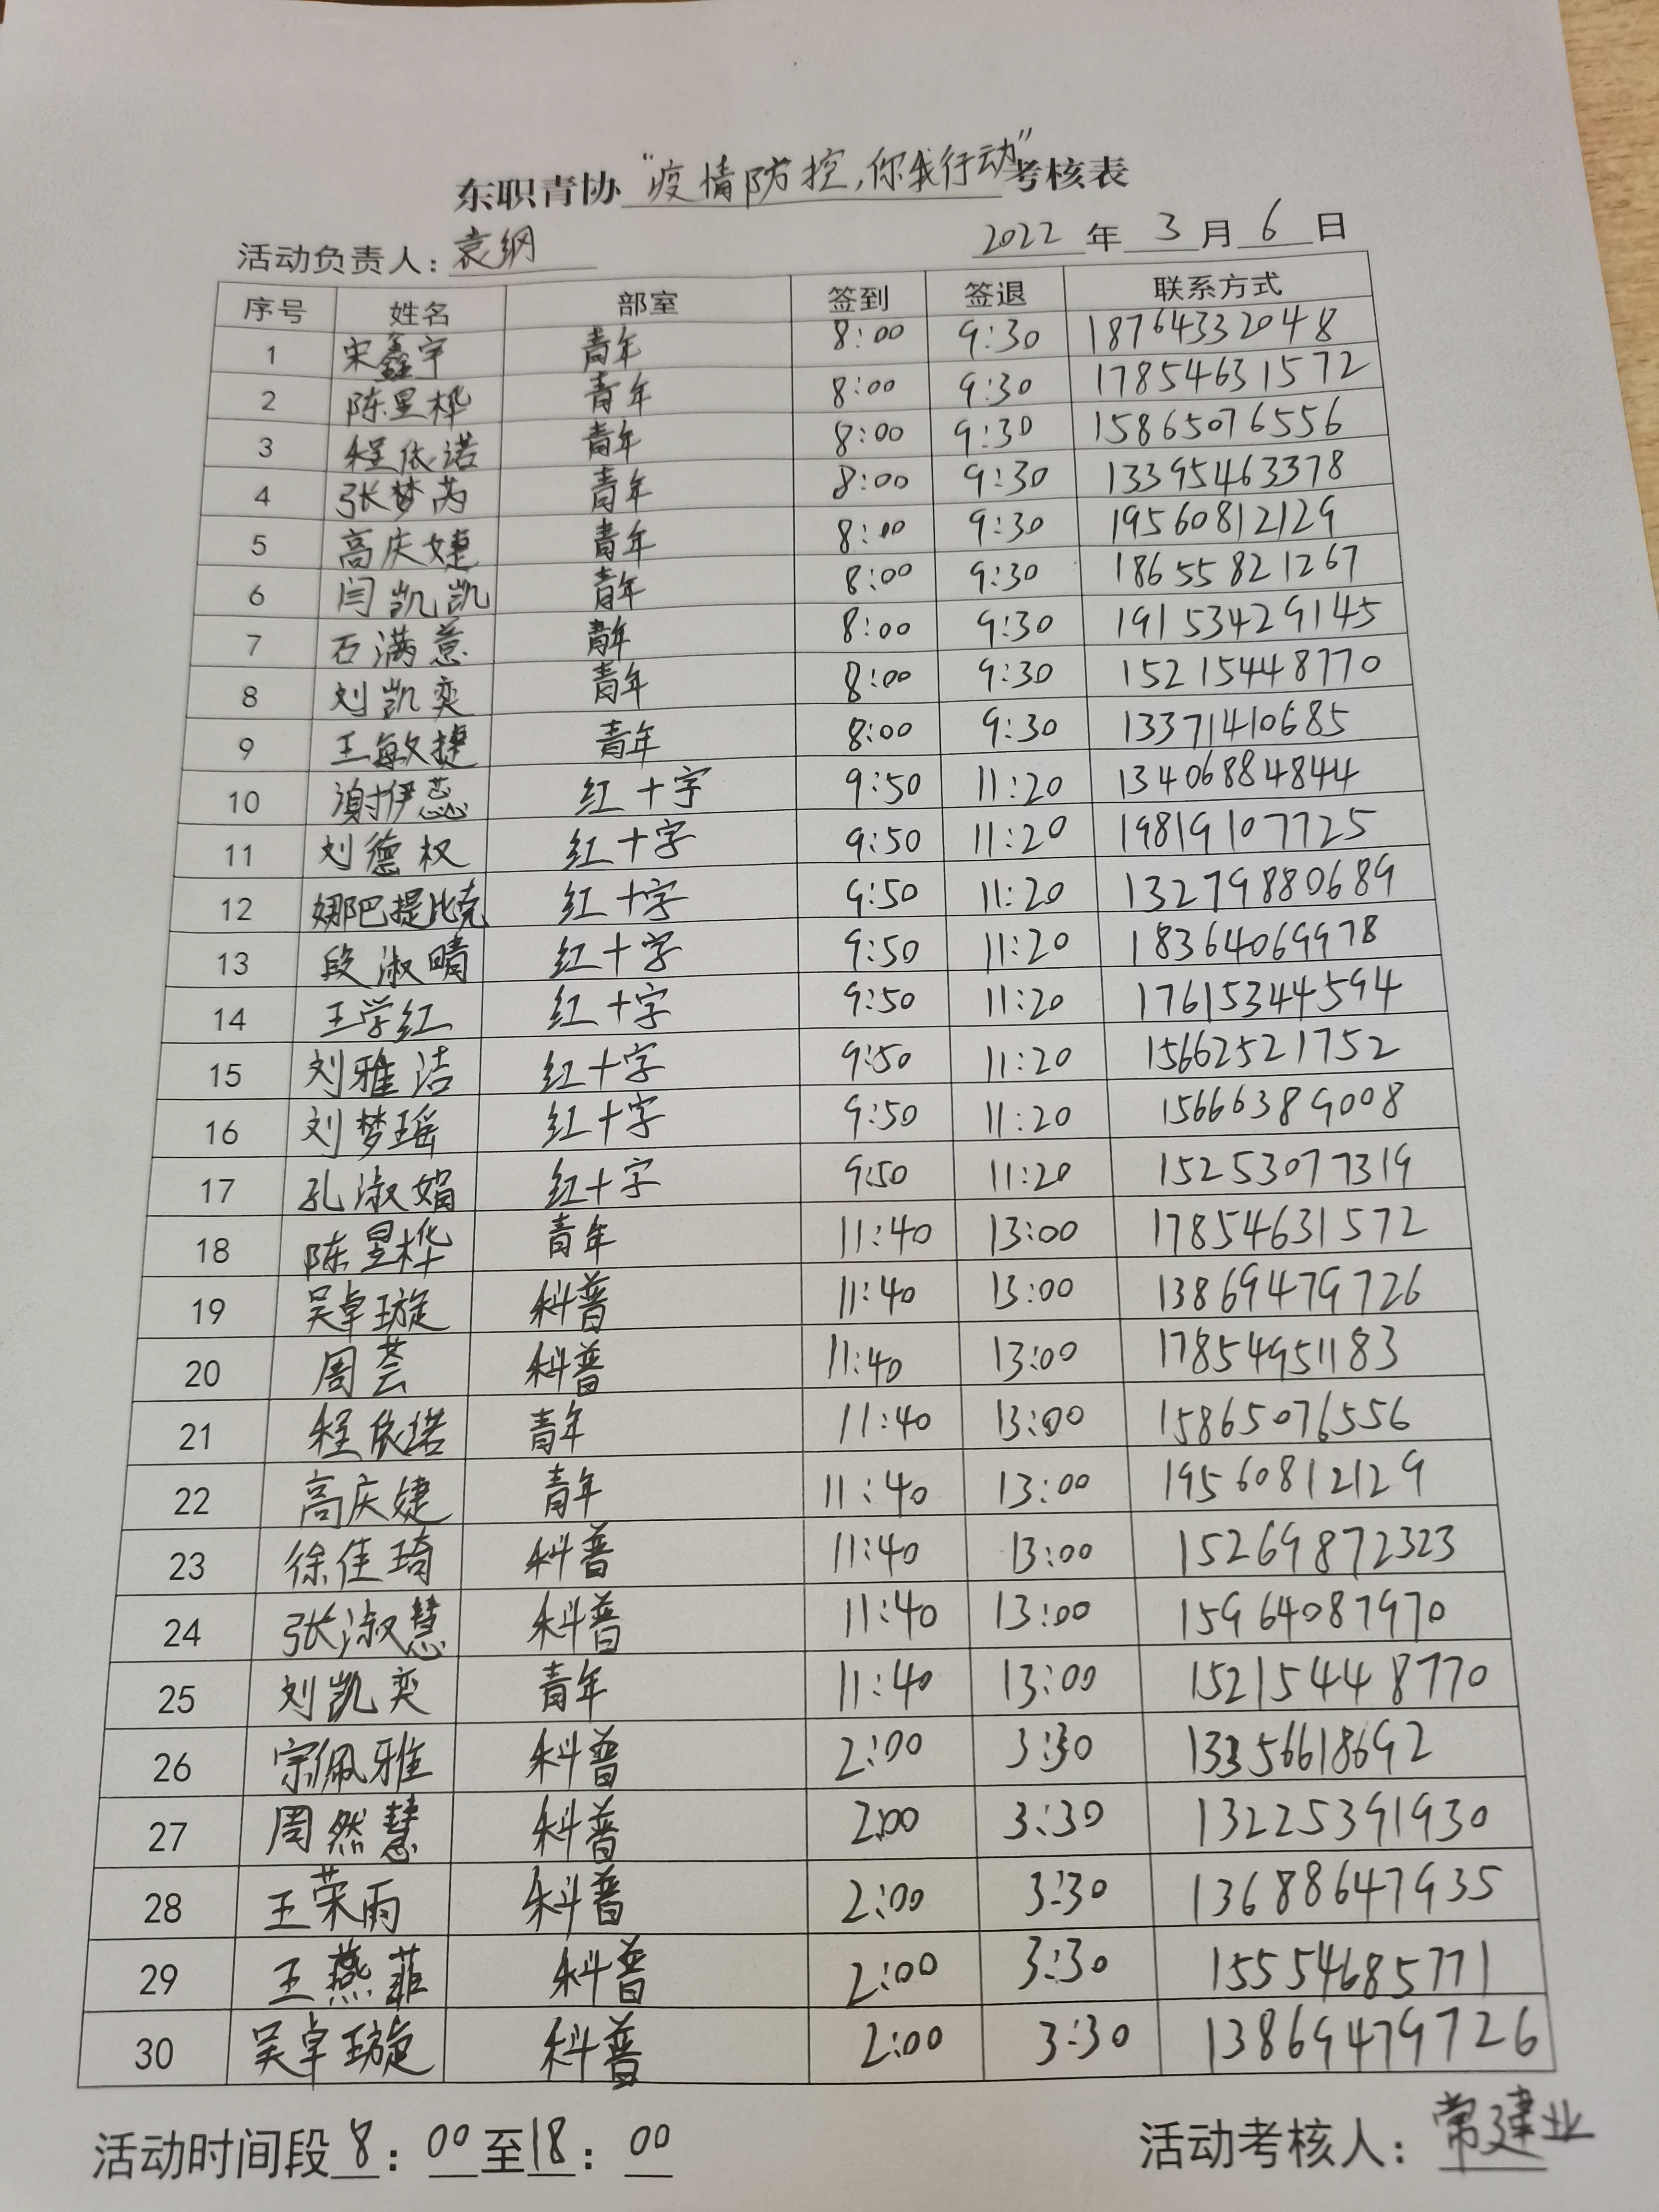 东职青协“疫情防控,你我行动”考核表
活动负责人:袁纲 2022年3月6日
序号 姓名 部室 签到 签退 联系方式
1 宋鑫宇 青年 8:00 9:30 18764332048
2 陈昱桦 青年 8:00 9:30 17854631572
3 程依诺 青年 8:00 9:30 15865076556
4 张梦芮 青年 8:00 9:30 13395463378
5 高庆婕 青年 8:00 9:30 19560812129
6 闫凯凯 青年 8:00 9:30 18655821267
7 石满意 青年 8:00 9:30 19153429145
8 刘凯奕 青年 8:00 9:30 15215448770
9 王敏捷 青年 8:00 9:30 13371410685
10 谢伊蕊 红十字 9:50 11:20 13406884844
11 刘德权 红十字 9:50 11:20 19819107725
12 娜巴提比克 红十字 9:50 11:20 132799880689
13 段淑晴 红十字 9:50 11:20 18364069978
14 王学红 红十字 9:50 11:20 17615344594
15 刘雅洁 红十字 9:50 11:20 15662521752
16 刘梦瑶 红十字 9:50 11:20 15666389008
17 孔淑娟 红十字 9:50 11:20 15253077319
18 陈昱桦 青年 11:40 13:00 17854631572
19 吴卓璇 科普 11:40 13:00 13869479726
20 周芸 科普 11:40 13:00 17854951183
21 程依诺 青年 11:40 13:00 15865076556
22 高庆婕 青年 11:40 13:00 19560812129
23 徐佳琦 科普 11:40 13:00 15269872323
24 张淑慧 科普 11:40 13:00 15964087970
25 刘凯奕 青年 11:40 13:00 15215448770
26 宗佩雅 科普 2:00 3:30 13356618692
27 周然慧 科普 2:00 3:30 13225391930
28 王荣雨 科普 2:00 3:30 13688647935
29 王燕菲 科普 2:00 3:30 15554685771
30 吴卓璇 科普 2:00 3:30 13869479726
活动时间段8:00至18:00 活动考核人:常建业